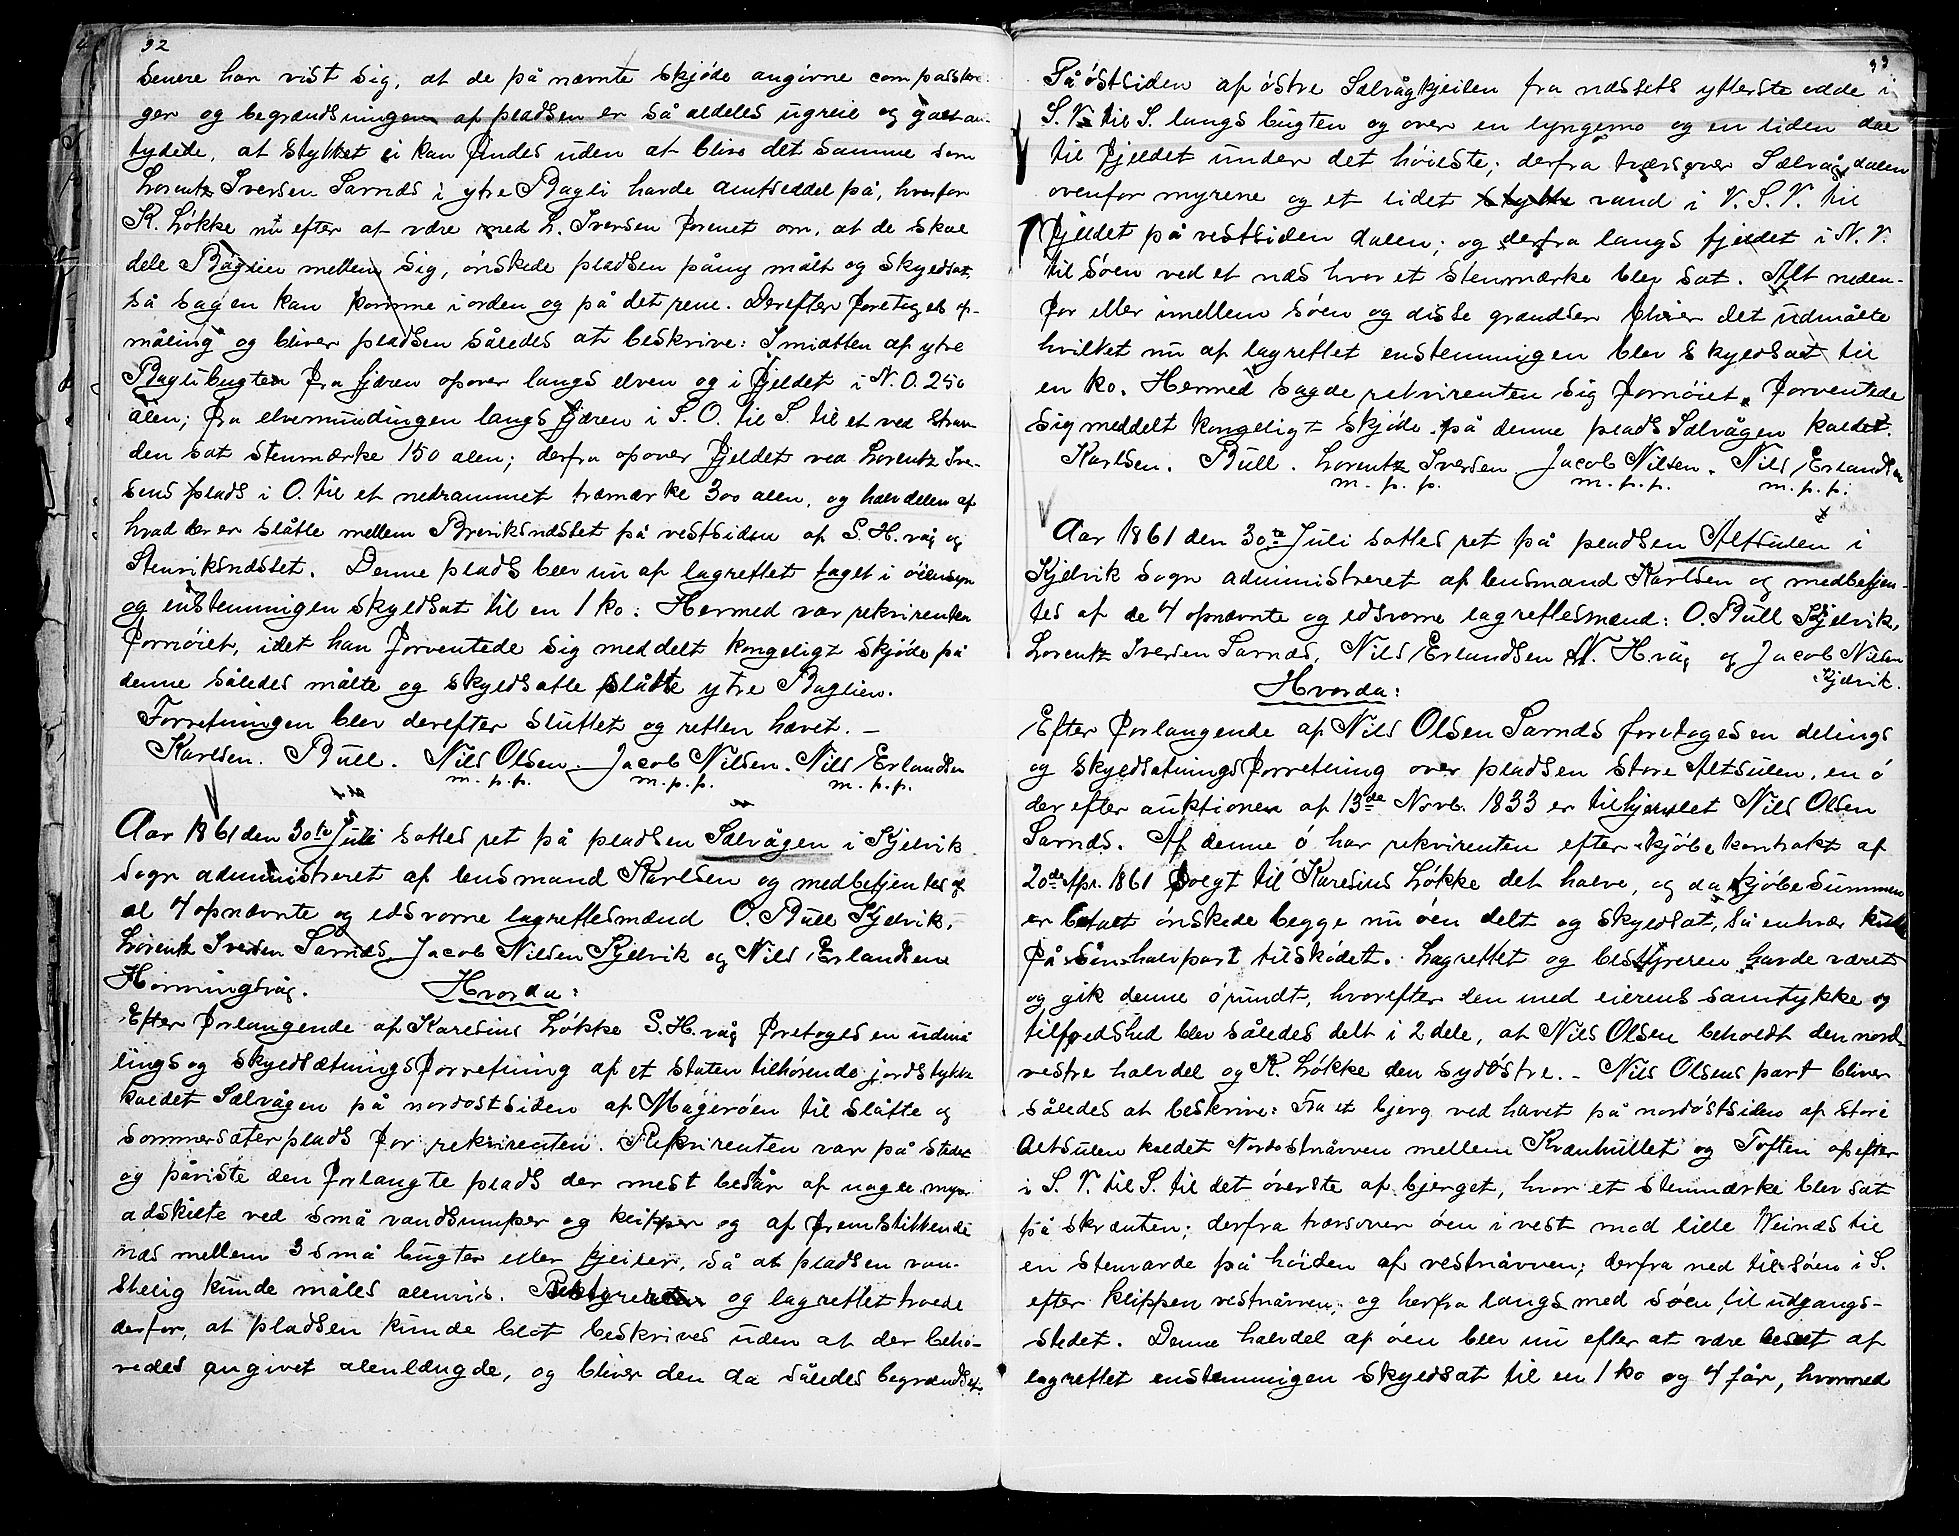 32
senere har vist sig, at de på nævnte skjøde angivne compasstre-
ger og begrændsningen af pladsen er så aldeles ugreie og galt an-
tydede, at stykket ei kan findes uden at blive det samme som
Lorentz Iversen Sarnæs i ytre Bagli havde amtseddel på, hvorfor
K. Løkke nu efter at være med L. Iversen forenet om, at de skal
dele Baglien mellem sig, ønskede pladsen påny målt og skyldsat,
så sagen kan komme i orden og på det rene. Derefter foretoges op-
måling og bliver pladsen således at beskrive: I midten af ytre
Baglibugten fra fjæren opover langs elven og i fjeldet i N.O. 250
alen; fra elvemundingen langs fjæren i S.O. til S. til et ved stran-
den sat stenmærke 150 alen; derfra opover fjeldet ved Lorentz Iver-
sens plads i O. til et nedrammet træmærke 300 alen, og halvdelen af
hvad der er slåtte mellem Breviksnæstet på vestsiden af S. H. våg og
Stenviksnæstet. Denne plads blev nu af lagrettet taget i øiensyn
og enstemmigen skyldsat til en 1 ko: Hermed var rekvirenten
fornøiet, idet han forventede sig meddelt kongeligt skjøde på
denne således målte og skyldsatte slåtte ytre Baglien.
Forretningen blev derefter sluttet og retten hævet. –
Karlsen. Bull. Nils Olsen. Jacob Nilsen. Nils Erlandsen
m. p. p. m. p. p. m. p. p.
Aar 1861 den 30te Juli sattes ret på pladsen Sælvågen i Kjelvik
sogn administreret af lensmand Karlsen og medbetjentes af
de 4 opnævnte og edsvorne lagrettesmænd O. Bull Kjelvik,
Lorentz Iversen Sarnæs, Jacob Nilsen Kjelvik og Nils Erlandsen
Honningsvåg. Hvorda:
Efter forlangende af Karesius Løkke S. H. våg foretoges en udmå-
lings og skyldsætningsforretning af et staten tilhørende jordstykke
kaldet Sælvågen på nordostsiden af Magerøen til slåtte og
sommersæterplads for rekvirenten. Rekvirenten var på stedet
og påviste den forlangte plads der mest består af nogle myrer
adskilte ved små vandsumper og klipper og af fremstikkende
næs mellem 3 små bugter eller kjeiler, så at pladsen van-
skelig kunde måles alenvis. Bestyreren og lagrettet troede
derfor, at pladsen kunde blot beskrives uden at der behø-
vedes angivet alenlængde, og bliver den da således begrændset:
33
På østsiden af østre Sælvågkjeilen fra næssets ytterste odde i
S.V. til S. langs bugten og over en lyngemo og en liden dal
til fjeldet under det høieste; derfra tversover Sælvågdalen
ovenfor myrene og et lidet vand i V.S.V. til
fjeldet på vestsiden dalen; og derfra langs fjeldet i N.V.
til søen ved et næs hvor et stenmærke blev sat. Alt neden-
for eller imellem søen og disse grændser bliver det udmålte
hvilket nu af lagrettet enstemmigen blev skyldsat til
en ko. Hermed sagde rekvirenten sig fornøiet, forventede
sig meddelt kongeligt skjøde på denne plads Sælvågen kaldet.
Karlsen. Bull. Lorentz Iversen. Jacob Nilsen. Nils Erlandsen
m. p. p. m. p. p. m. p. p.
Aar 1861 den 30te Juli sattes ret på pladsen Altsulen i
Kjelvik sogn administreret af lensmand Karlsen og medbetjen-
tes af de 4 opnævnte og edsvorne lagrettesmænd: O. Bull Kjelvik,
Lorentz Iversen Sarnæs, Nils Erlandsen N. H. våg og Jacob Nilsen
Kjelvik.
Hvorda:
Efter forlangende af Nils Olsen Sarnæs foretoges en delings
og skyldsætningsforretning over pladsen store Altsulen, en ø
der efter auktionen af 13de Novb. 1833 er tilhjemlet Nils Olsen
Sarnæs. Af denne ø har rekvirenten efter kjøbekontrakt af
20de Apr. 1861 solgt til Karesius Løkke det halve, og da kjøbesummen
er betalt ønskede begge nu øen delt og skyldsat, så enhvær kunde
få sin halvpart tilskødet. Lagrettet og bestyreren havde været
og gik denne ø rundt, hvorefter den med eierens samtykke og
tilfredshed blev således delt i 2 dele, at Nils Olsen beholdt den nord-
vestre halvdel og K. Løkke den sydøstre. – Nils Olsens part bliver
således at beskrive: Fra et bjerg ved havet på nordøstsiden af store
Altsulen kaldet Nordostnåvven mellem Kvænhullet og Toften opefter
i S.V. til S. til det øverste af bjerget, hvor et stenmærke blev sat
på skrænten; derfra tversover øen i vest mod lille Weinæs til
en stenvarde på høiden af vestnåvven; derfra ned til søen i S.
efter klippen vestnåvven, og herfra langs med søen til udgangs-
stedet. Denne halvdel af øen blev nu efter at være beset af
lagrettet enstemmigen skyldsat til en 1 ko og 4 får, hvormed